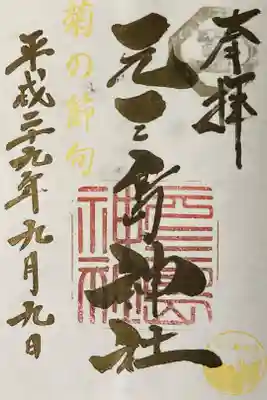 奉拝
元三島神社
菊の節句
平成二十九年九月九日